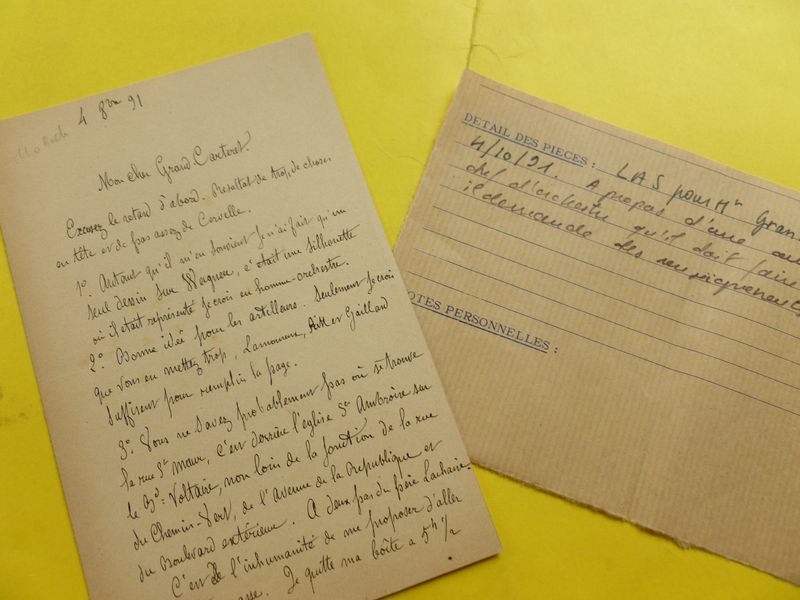 4 8bre 91
Mon cher Grand Carteret.
Excusez le retard d'abord. Resultat de trop de choses
en tête et de pas assez de Cervelle.
1º. Autant qu'il m'en souvient je n'ai fait qu'un
seul dessin sur Wagner, c'était une silhouette
où il était représenté je crois en homme-orchestre.
2º. Bonne idée pour les artilleurs. Seulement je crois
que vous en mettez trop, Lamoureux, et Gaillard
suffisent pour remplir la page.
3º. Vous ne savez probablement pas où se trouve
la rue St Maur, c'est derrière l'eglise St Ambroise sur
le Bd: Voltaire, non loin de la jonction de la rue
du Chemin-Vert, de l'Avenue de la République et
du Boulevard extérieur. A deux pas du père Lachaise.
C'est de l'inhumanité de me proposer d'aller
Je quitte ma boîte a 5h 1/2
DETAIL DES PIECES : LAS pour Mr Gran
4/10/91. A propos d'une
chef d'orchestre qu'il doit faire
il demande des renseignements
OTES PERSONNELLES :